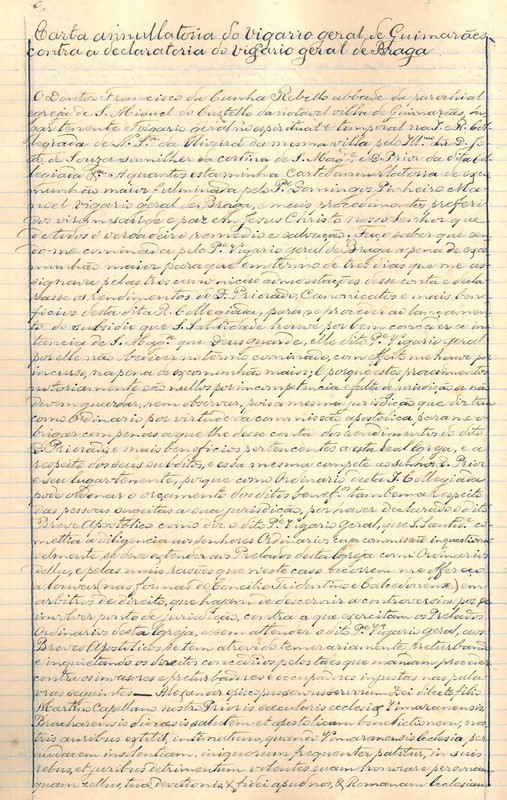 Carta annullatoria do vigario geral de Guimarães
contra a declaratoria do vigario geral de Braga
O Doutor Francisco da Cunha Rebello abbade da parochial
egreja de S. Miguel do Castello da notavel villa de Guimarães, lu-
gartenente e vigario geral no espiritual e temporal na S. R. Col-
legiada de N. Sr.ª da Oliveira da mesma villa pelo Ill.mo Sr. D.
de Souza sumilher da cortina de S. Mag.e e D. Prior da dita Col-
legiada &.ª A quantos esta minha Carta annullatoria de exc-
munhão maior fulminada pelo P.e Domingos Pinheiro Ma-
noel vigario geral de Braga, e mais procedimentos proferi-
dos virem saude e paz em Jesus Christo nosso Senhor que
de todos é verdadeiro remedio e salvação. Faço saber que sen-
do me cominada pelo P.e Vigario geral de Braga a pena de exco
munhão maior para que em termo de tres dias que me as-
signara pelas tres canonicas amoestações desse conta e decla-
rasse os rendimentos do D. Priorado, Canonicatos e mais bene-
ficios desta dita R. Collegiada, para se proceder ao lançamen-
to do subsidio que S. Santidade houve por bem conceder a in-
stancia de S. Mag.e que Deus guarde, elle dito P.e Vigario geral
por elle não obedecer no termo cominado, com effeito me houve por
incurso, na pena de excomunhão maior; E porque estes procedimentos
notoriamente são nullos por incompetencia e falta de jurisdição se não
devem guardar, nem observar, pois a mesma jurisdição que diz tem
como Ordinario por virtude da commissão apostolica para me o-
brigar com penas a que lhe desse conta dos rendimentos do dito
D. Priorado, e mais beneficios pertencentes a esta Real Igreja, e a
respeito dos seus subditos, e essa mesma compete ao senhor D. Prior
e seu lugartenente, porque como Ordinario desta I. Collegiada
pode ordenar o orçamento dos ditos benef.os tambem a respeito
das pessoas sugeitas a sua jurisdição, por haver declarado o dito
Breve Apostolico como diz o dito P.e Vigario Geral, que S. Sant.e co-
mettia a diligencia aos senhores Ordinarios cuja commissão inquestiona-
velmente se deve extender aos Prelados desta Igreja como Ordinarios
della, e pelas mais rasões que neste caso occorrem me offereço
a louvar (nas formas do Concilio Tridentino e Calcedonense) em
arbitros de direito, que hajam de descernir a controversia por se
involver ponto de jurisdição, contra a que exercitam os Prelados
Ordinarios desta Igreja, e sem attender o dito P.e Vigario geral, aos
Breves Apostolicos se tem atrevido temerariamente, preturbando
e inquietando os direitos concedidos pelos taes que mandam proceder
contra os invasores e preturbadores e occupadores injustos nas pala-
vras seguintes — Alexander episcopus servus servorum Dei dilecto filio
Martino Capellano nostro Prioris secularis ecclesiæ Vimaranensis,
Bracharensis diocesis salutem et apostolicam benedictionem, nos-
tris auribus extitit, intonatum, quando Vimaranensis ecclesia per
quidacem insolentiam, iniquorum frequenter patitur, in suis
rebus, et juribus detrimentum volentes quam honorare personam
quam zellus, tuæ devotionis, & fidei apud nos, & Romanam ecclesiam